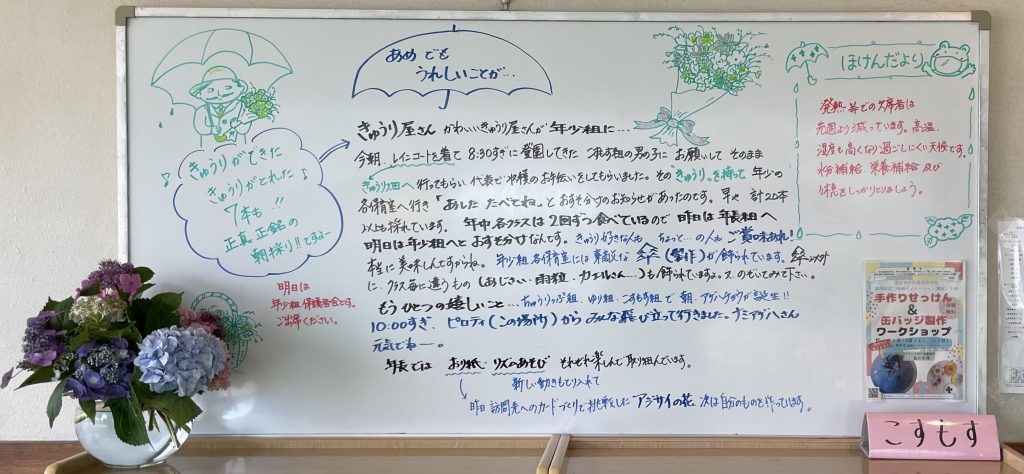 あめ でも
うれしいことが…
きゅうりができた
きゅうりがとれた
7本も!!
正真正銘の
朝採り!!ですよー
明日は
年少組保護者会です。
ご出席ください。
きゅうり屋さん かわいいきゅうり屋さんが 年少組に…
今朝、レインコートを着て 8:30すぎに登園してきた こすもす組の男の子に お願いして そのまま
きゅうり畑へ行ってもらい、代表で収穫のお手伝いをしてもらいました。その きゅうり。を持って 年少の
各保育室へ行き「あした たべてね。」とおすそ分けのお知らせがあったのです。早や 計20本
以上も採れています。 年中各クラスは2回ずつ食べているので 昨日は年長組へ
明日は年少組へとおすそ分けなんです。きゅうり好きな人も ちょっと…の人も ご賞味あれ!
本当に美味しんですからね。年少組各保育室には素敵な 傘(製作)が飾られています。傘の
に、クラス毎に違うもの(あじさい・雨粒・カエルくん…)も飾られていますよ。のぞいてみて下さい。
もうひとつの嬉しいこと…ちゅうりっぷ組、ゆり組・こすもす組で 朝、アゲハチョウが誕生!!
10:00すぎ、ピロティ(この場所)から みんな飛び立って行きました。ナミアゲハさん
元気でねー。
年長では お折紙、リズムあそび それぞれ楽しんで取り組んでいます。
新しい動きもとり入れて
昨日 訪問先へのカードづくりで挑戦した アジサイの花、次は自分のものを作っています。
ほけんだより
発熱 等での欠席者は
先週より減っています。高温、
湿度も高くなり過ごしにくい天候です。
水分補給、栄養補給 及び
休息をしっかりとりましょう。
手作りせっけん
&
缶バッジ製作
ワークショップ
こすもす